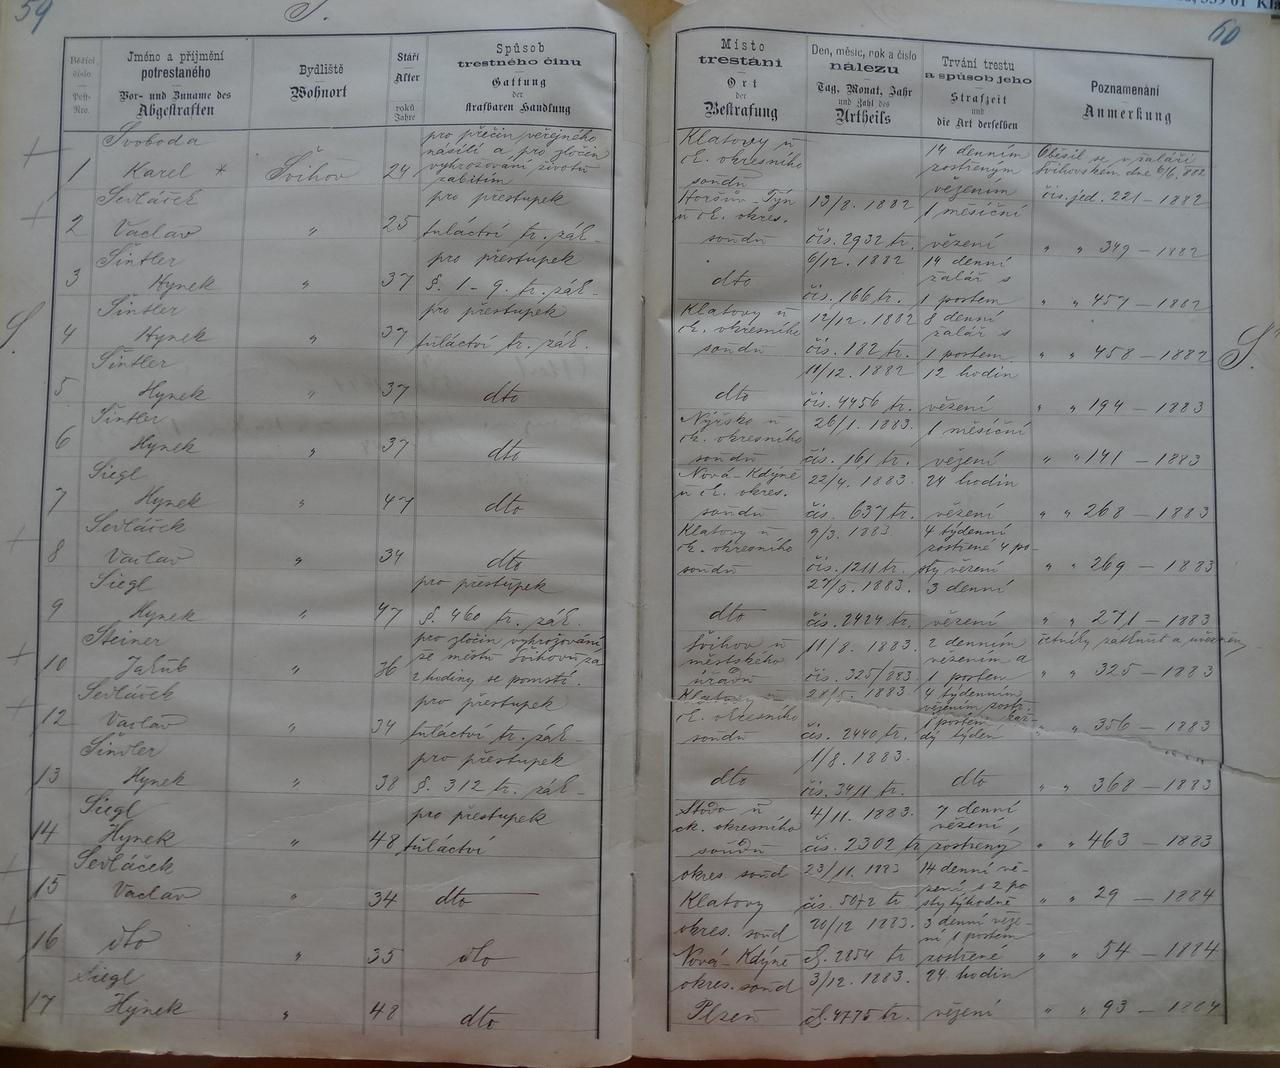 59
S.
60
339 01 Kla
Běžící číslo
Post-Nro.
Jméno a příjmění potrestaného
Vor- und Zuname des Abgestraften
Bydliště
Wohnort
Stáří
Alter
roků
Jahre
Spůsob trestného činu
Gattung der strafbaren Handlung
Místo trestání
Ort der Bestrafung
Den, měsíc, rok a číslo nálezu
Tag, Monat, Jahr und Zahl des Urtheils
Trvání trestu a spůsob jeho
Strafzeit und die Art derselben
Poznamenání
Anmerkung
S.
S.
1 Svoboda Karel * Švihov 24 pro přečin veřejného násilí a pro zločin vyhrožování života zabitím Klatovy u ck. okresního soudu 14 denním zostřeným vězením Oběsil se v žaláři Švihovském dne 6/6. 882 čís. jed. 221 – 1882
2 Sedláček Václav " 25 pro přestupek tuláctví tr. zák. Horšův-Týn u ck. okres. soudu 13/8. 1882 čís. 2932 tr. 1 měsíční vězení " " 349 – 1882
3 Šintler Hynek " 37 pro přestupek §. 1-9. tr. zák. dto 6/12. 1882 čís. 166 tr. 14 denní žalář s 1 postem " " 457 – 1882
4 Šintler Hynek " 37 pro přestupek tuláctví tr. zák. Klatovy u ck. okresního soudu 12/12. 1882 čís. 182 tr. 8 denní žalář s 1 postem " " 458 – 1882
5 Šintler Hynek " 37 dto dto 11/12. 1882 čís. 4456 tr. 12 hodin vězení " " 194 – 1883
6 Šintler Hynek " 37 dto Nýrsko u ck. okresního soudu 26/1. 1883. čís. 161 tr. 1 měsíční vězení " " 141 – 1883
7 Siegl Hynek " 47 dto Nová-Kdýně u ck. okres. soudu 22/4. 1883. čís. 637 tr. 24 hodin vězení " " 268 – 1883
8 Sedláček Václav " 34 dto Klatovy u ck. okresního soudu 9/3. 1883. čís. 1211 tr. 4 týdenní zostřené 4 posty vězení " " 269 – 1883
9 Siegl Hynek " 47 pro přestupek §. 460 tr. zák. dto 27/5. 1883. čís. 2424 tr. 3 denní vězení " " 271 – 1883
10 Steiner Jakub " 36 pro zločin vyhrožování že městu Švihovu za 2 hodiny se pomstí Švihov u městského úřadu 11/8. 1883. čís. 325/883 2 denním vězením a 1 postem četníky zatknut a " " 325 – 1883
12 Sedláček Václav " 34 pro přestupek tuláctví tr. zák. Klatovy u ck. okresního soudu 28/5. 1883 čís. 2440 tr. 4 týdenním vězením zostř. 1 postem každý týden " " 356 – 1883
13 Šindler Hynek " 38 pro přestupek §. 312 tr. zák. dto 1/8. 1883. čís. 3411 tr. dto " " 368 – 1883
14 Siegl Hynek " 48 pro přestupek tuláctví Stodo u ck. okresního soudu 4/11. 1883. čís. 2302 tr. 7 denní vězení, zostřený " " 463 – 1883
15 Sedláček Václav " 34 dto okres. soud Klatovy 23/11. 1883 čís. 5072 tr 14 denní vězení s 2 posty týhodně " " 29 – 1884
16 dto " 35 dto okres. soud Nová-Kdýně 20/12 1883. Č. 2854 tr. 3 denní vězení 1 postem zostřené " " 54 – 1884
17 Siegl Hynek " 48 dto okres. soud Plzeň 3/12. 1883. Č. 4775 tr. 24 hodin vězení " " 93 – 1884